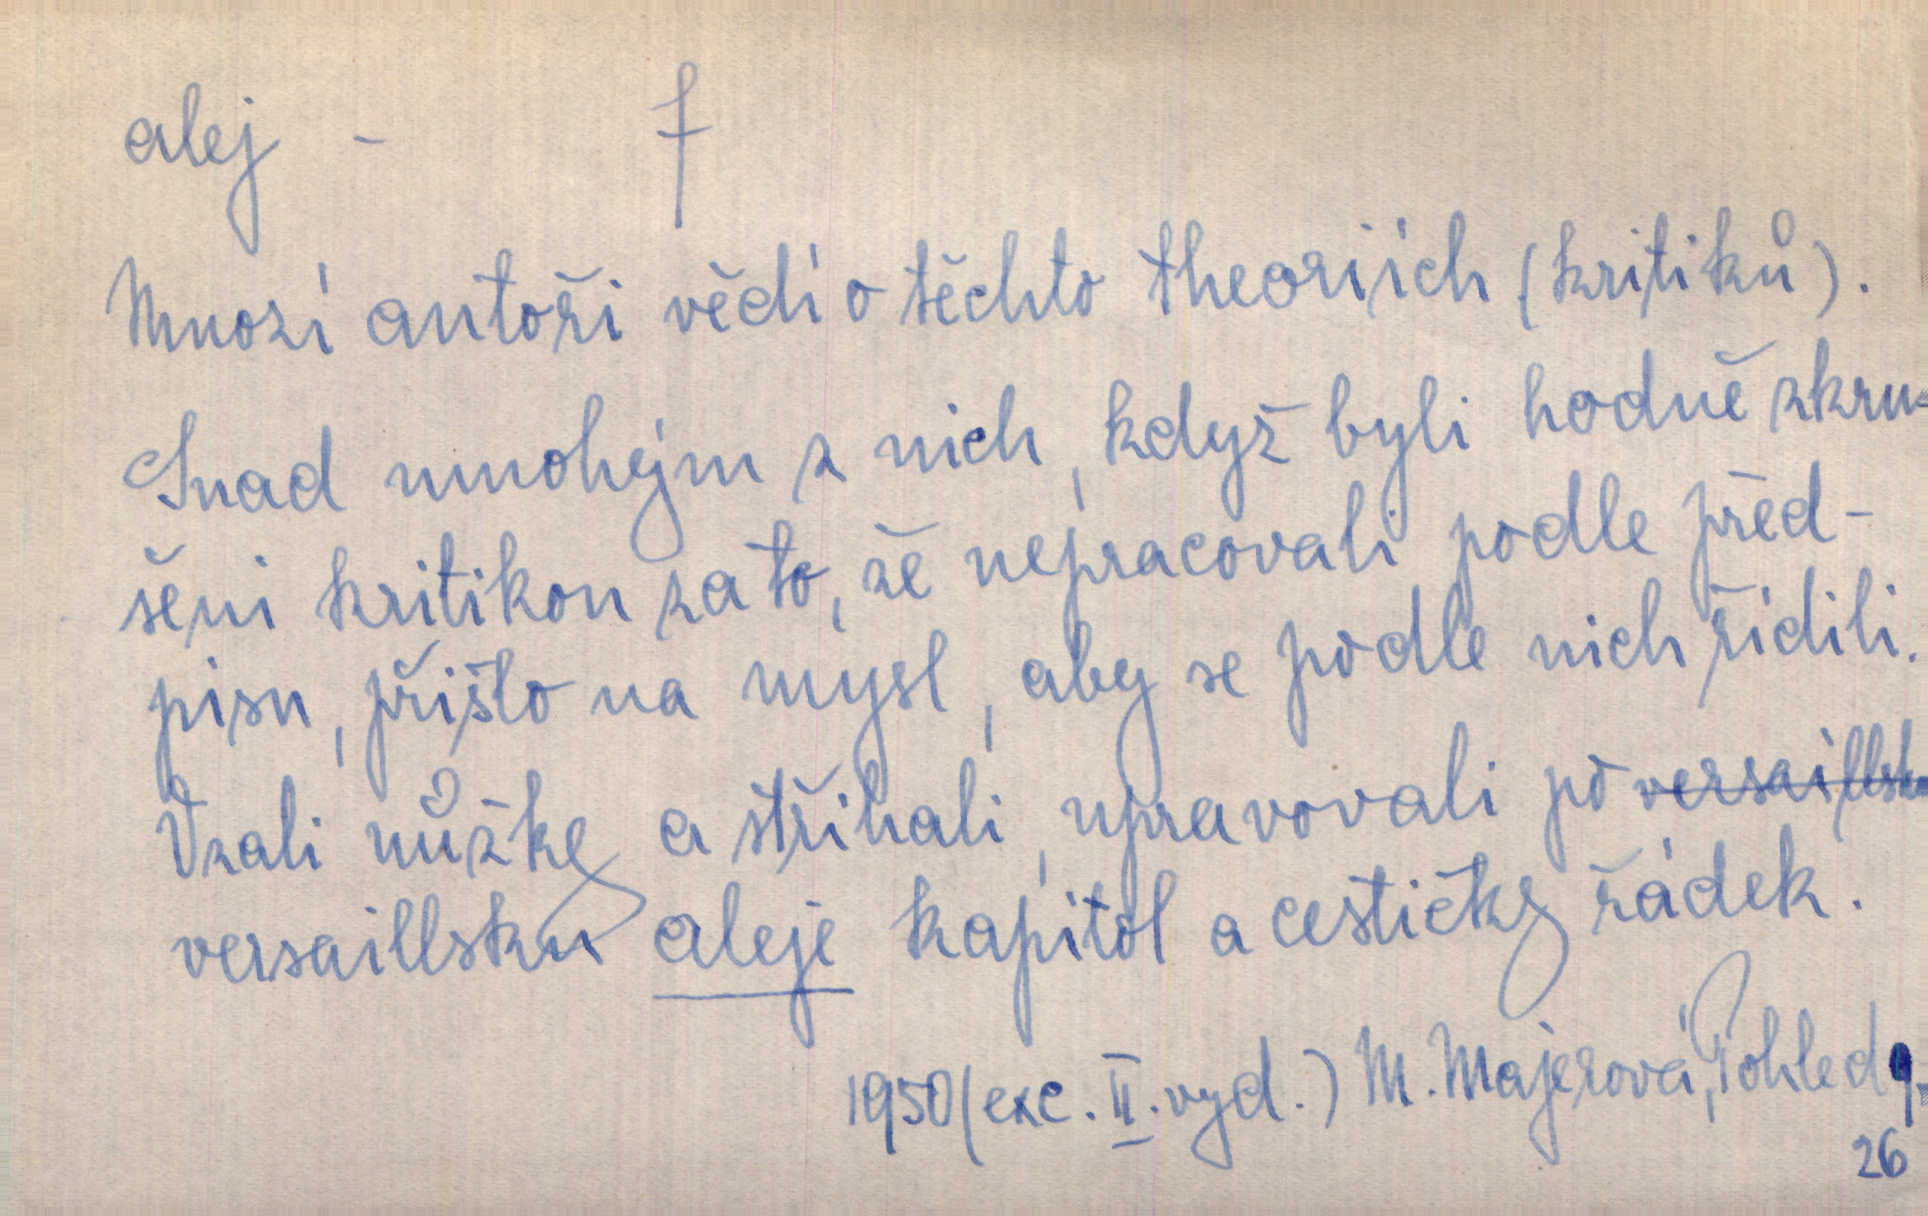 alej - f
Mnozí autoři vědí o těchto theoriích (kritiků).
Snad mnohým z nich, když byli hodně zkru-
šeni kritikou za to, že nepracovali podle před-
pisu, přišlo na mysl, aby se podle nich řídili.
Vzali nůžky a stříhali, upravovali po versaillsku
versaillsku aleje kapitol a cestičky řádek.
1950 (exc. II. vyd.) M. Majerová, Pohledy,
26